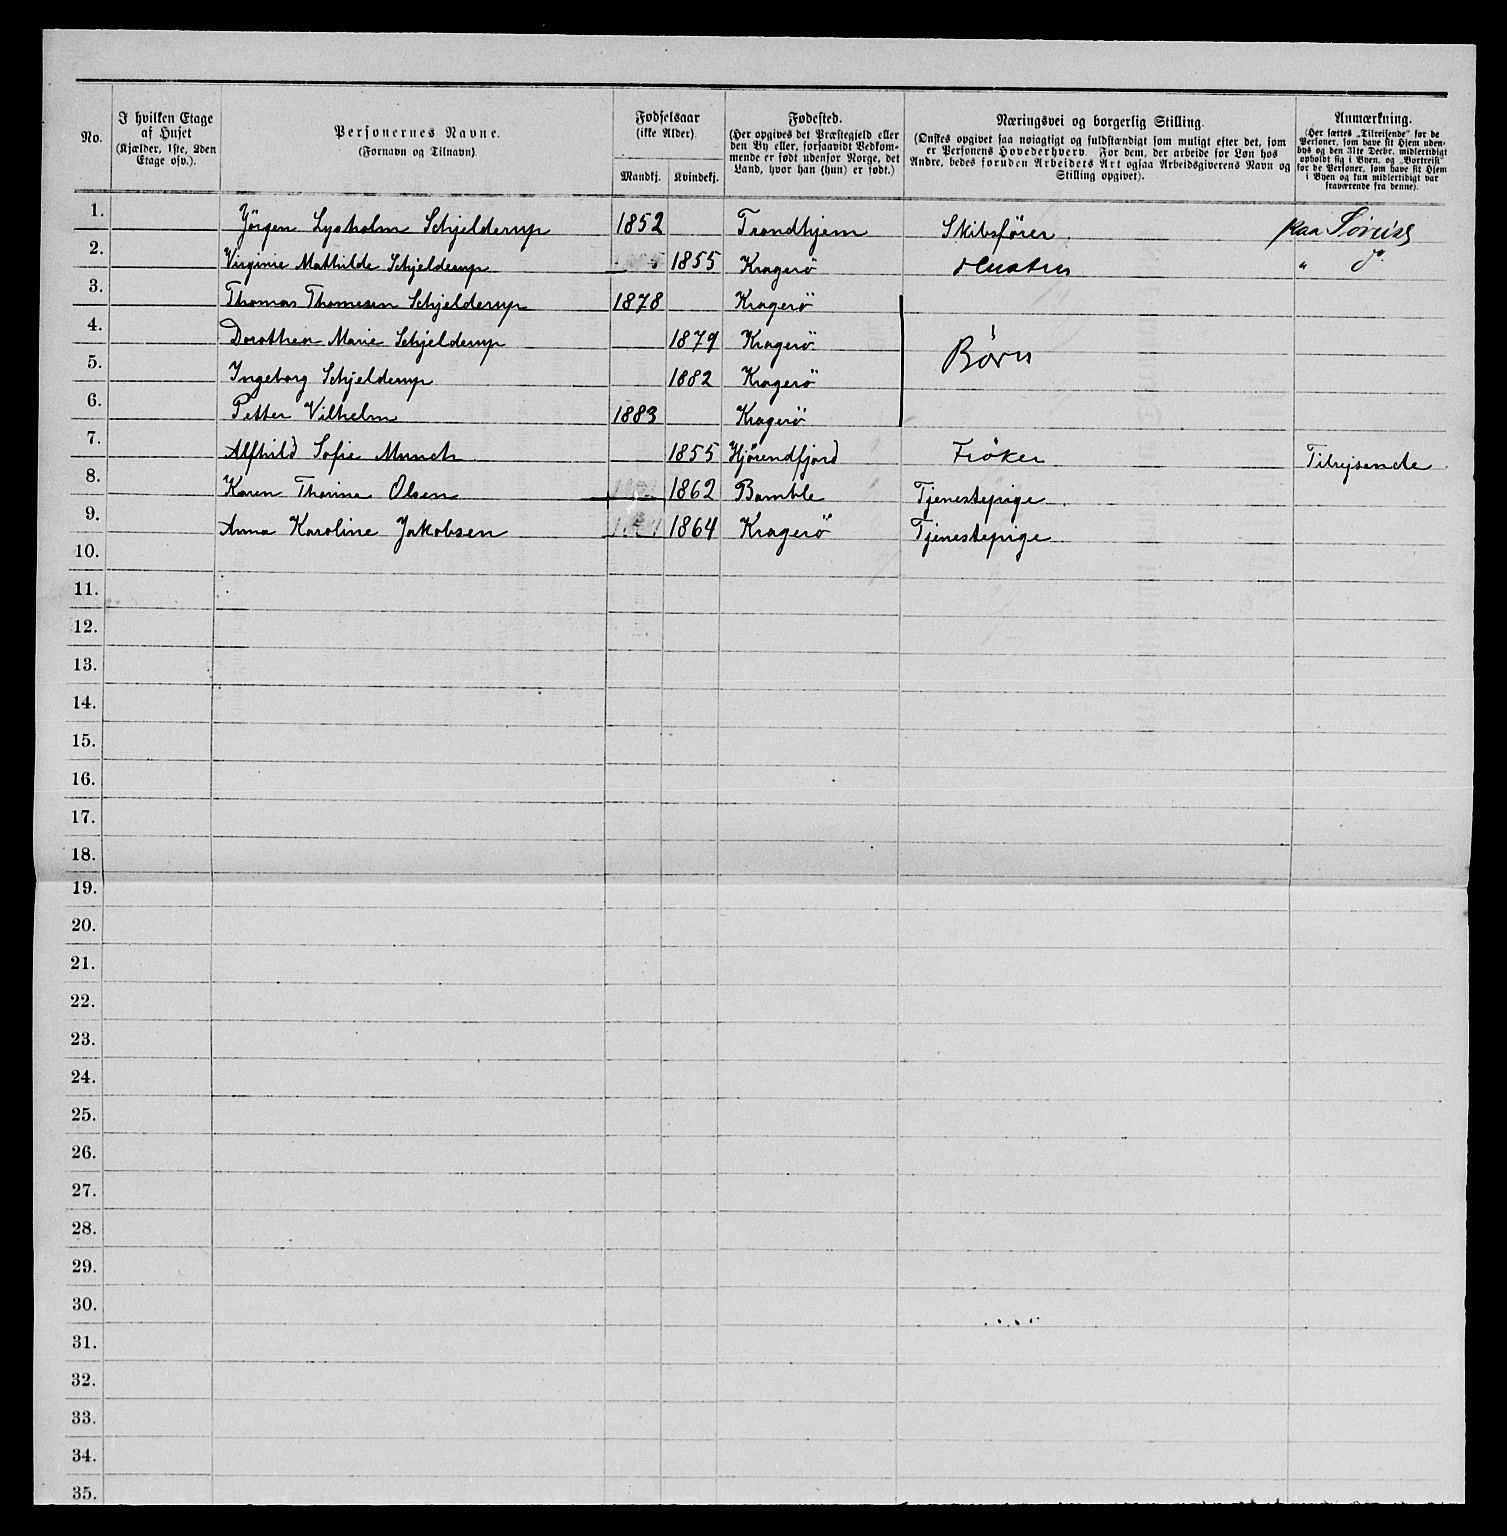 No.
I hvilken Etage
af Huset
(Kjælder, 1ste, 2den
Etage osv.).
Personernes Navne.
(Fornavn og Tilnavn)
Fødselsaar
(ikke Alder).
Mandkj. Kvindekj.
Fødested.
(Her opgives det Præstegjeld eller
den By eller, forsaavidt Vedkom-
mende er født udenfor Norge, det
Land, hvor han (hun) er født.)
Næringsvei og borgerlig Stilling.
(Ønskes opgivet saa nøiagtigt og fuldstændigt som muligt efter det, som
er Personens Hovederhverv. For dem, der arbeide for Løn hos
Andre, bedes foruden Arbeidets Art ogsaa Arbeidsgiverens Navn og
Stilling opgivet).
Anmærkning.
(Her sættes „Tilreisende" for de
Personer, som have sit Hjem uden-
bys og den 31te Decbr. midlertidigt
opholdt sig i Byen, og „Bortreist"
for de Personer, som have sit Hjem
i Byen og kun midlertidigt var
fraværende fra denne).
1. Jörgen Lysholm Schjelderup 1852 Trondhjem Skibsfører paa Söreise
2. Virginie Mathilde Schjelderup 1855 Kragerö Hustru " do
3. Thomas Thomesen Schjelderup 1878 Kragerö
4. Dorothea Marie Schjelderup 1879 Kragerö
Børn
5. Ingeborg Schjelderup 1882 Kragerö
6. Petter Vilhelm 1883 Kragerö
7. Alfhild Sofie Munch 1855 Hjörendfjord Fröken Tilrejsende
8. Karen Thorine Olsen 1862 Bamble Tjenestepige
9. Anna Karoline Jakobsen 1864 Kragerö Tjenestepige
10.
11.
12.
13.
14.
15.
16.
17.
18.
19.
20.
21.
22.
23.
24.
25.
26.
27.
28.
29.
30.
31.
32.
33.
34.
35.